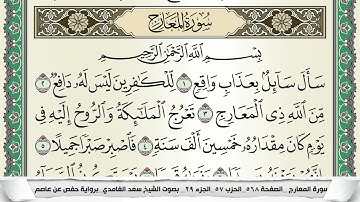 سُورَةُ المَعَارِجِ
بِسْمِ ٱللَّهِ ٱلرَّحْمَٰنِ ٱلرَّحِيمِ
سَأَلَ سَآئِلٌۢ بِعَذَابٍ وَاقِعٍ ١ لِّلْكَٰفِرِينَ لَيْسَ لَهُۥ دَافِعٌ ٢
مِّنَ ٱللَّهِ ذِى ٱلْمَعَارِجِ ٣ تَعْرُجُ ٱلْمَلَٰٓئِكَةُ وَٱلرُّوحُ إِلَيْهِ فِى
يَوْمٍ كَانَ مِقْدَارُهُۥ خَمْسِينَ أَلْفَ سَنَةٍ ٤ فَٱصْبِرْ صَبْرًا جَمِيلًا ٥
سورة المعارج الصفحة ٥٦٨ الحزب ٥٧ الجزء ٢٩ بصوت الشيخ سعد الغامدي برواية حفص عن عاصم